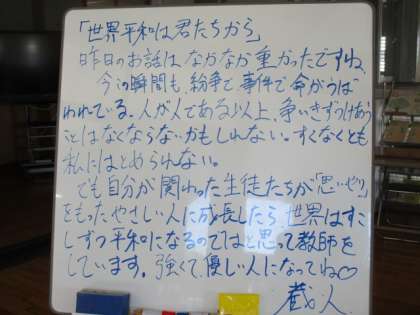 「世界平和は君たちから」
昨日のお話は なかなか重かったですね
今この瞬間も、紛争で、事件で 命がうば
われている。人が人である以上、争いきずつけあう
ことはなくならないかもしれない。すくなくとも
私にはとめられない。
でも自分が関わった生徒たちが、「思いやり」
をもったやさしい人に成長したら、世界はすこ
しずつ平和になるのではと思って教師を
しています。強くて、優しい人になってね♡
蔵人